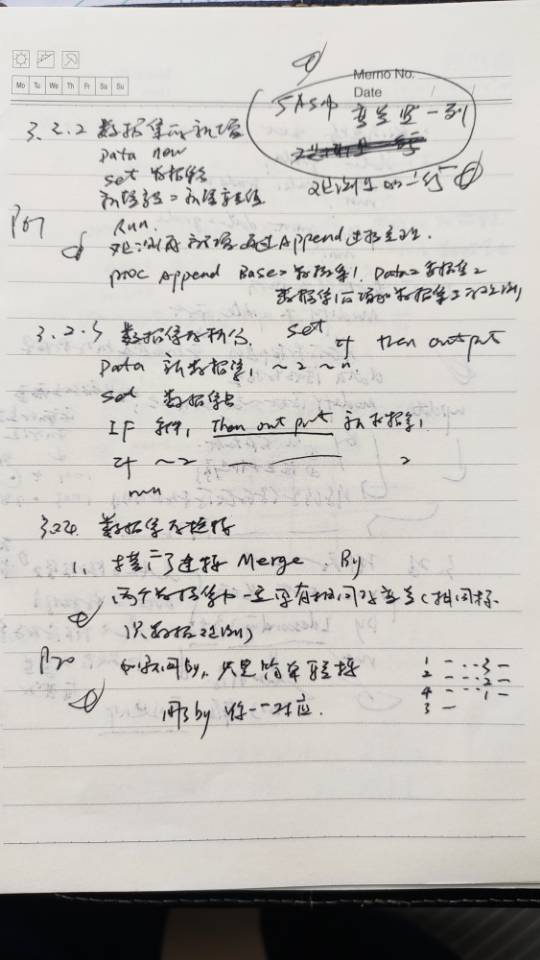 Mo Tu We Th Fr Sa Su
Memo No.
Date
SAS中 变量是一列
观测是一行
3.2.2 数据集的新增
Data new
set 数据集
新增变量=新增变量值
Run.
P67
观测的新增通过Append过程实现.
proc Append Base=数据集1. Data=数据集2
数据集1后增加数据集2的观测
3.2.3 数据集的拆分. set if then output
Data 新数据集1 ~2 ~n
set 数据集
IF 条件1 then output 新数据集1
if ~2 2
run
3.2.4. 数据集的连接
1. 横向连接 Merge By
两个数据集中一定要有相同的变量(相同标
识数据观测)
P70 如不用by, 只是简单联接
用了by 将一一对应.
1 — ‥ 3 —
2 — ‥ 2 —
4 — ‥ 1 —
3 —